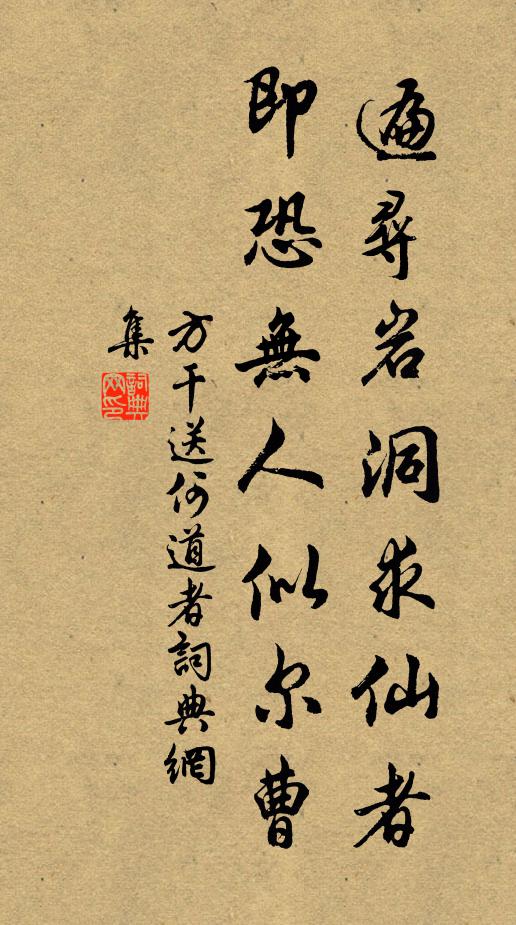 遍尋岩洞求仙者
即恐無人似尔曹
方干送何道者詞典網
集
詞典網印